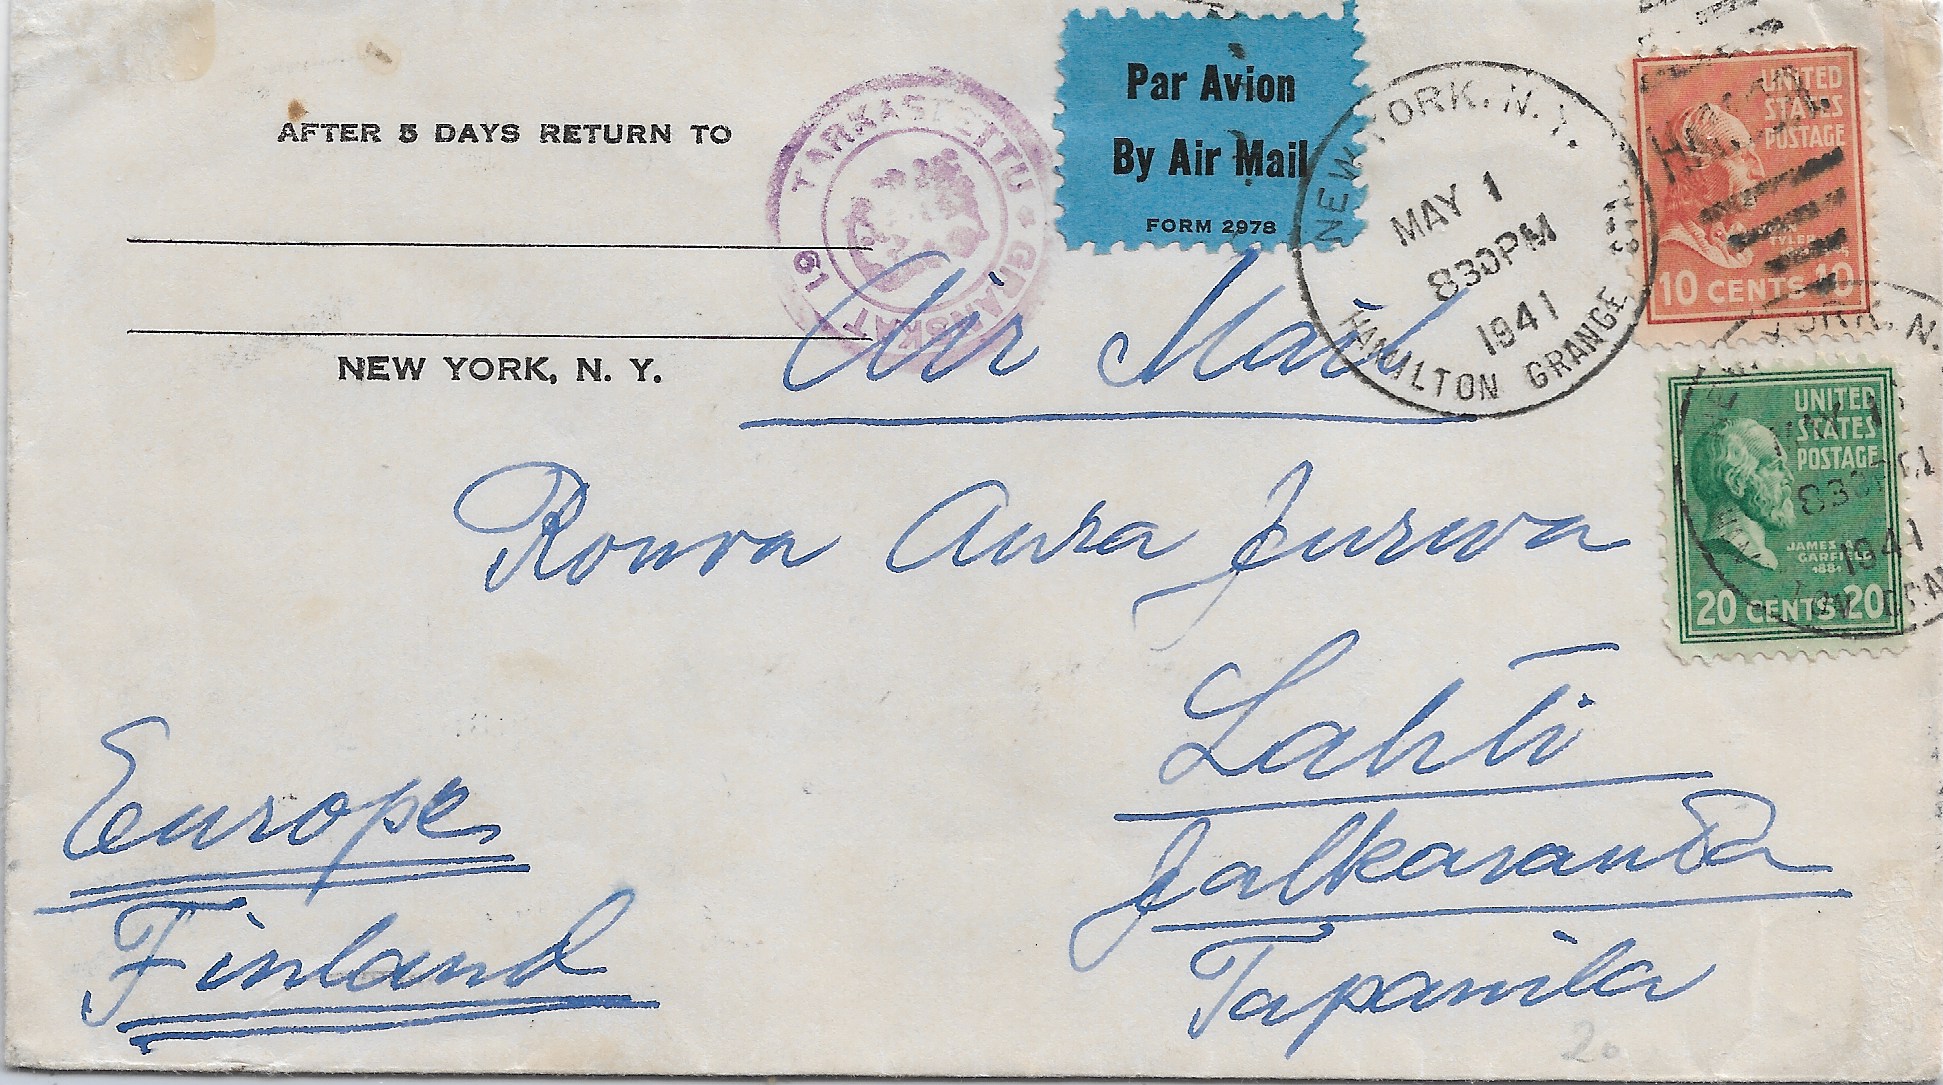 AFTER 5 DAYS RETURN TO
NEW YORK, N. Y.
TARKASTETTU * GRANSKAT 19
Par Avion
By Air Mail
FORM 2978
NEW YORK, N.Y.
MAY 1
830PM
1941
HAMILTON GRANGE STA.
UNITED
STATES
POSTAGE
TYLER
10 CENTS 10
UNITED
STATES
POSTAGE
JAMES A.
GARFIELD
1881
20 CENTS 20
MAY 1
830PM
1941
Air Mail
Rouva Aura Jurwa
Lahti
Jalkaranta
Tapanila
Europe
Finland